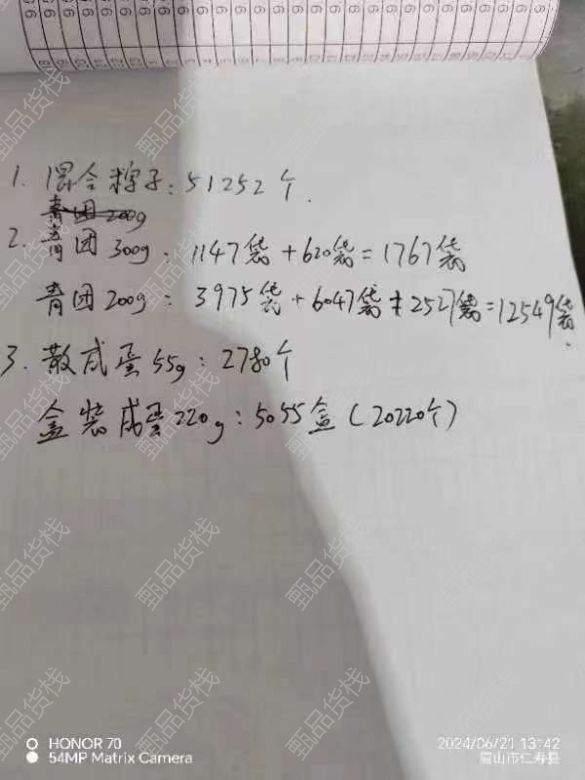 1. 混合粽子：51252个.
青团200g
2. 青团300g：1147袋+620袋=1767袋
青团200g：3975袋+6047袋+2527袋=12549袋.
3. 散咸蛋55g：2780个
盒装咸蛋220g：5055盒（20220个）
甄品货栈
HONOR 70
54MP Matrix Camera
2024/06/21 13:42
眉山市仁寿县